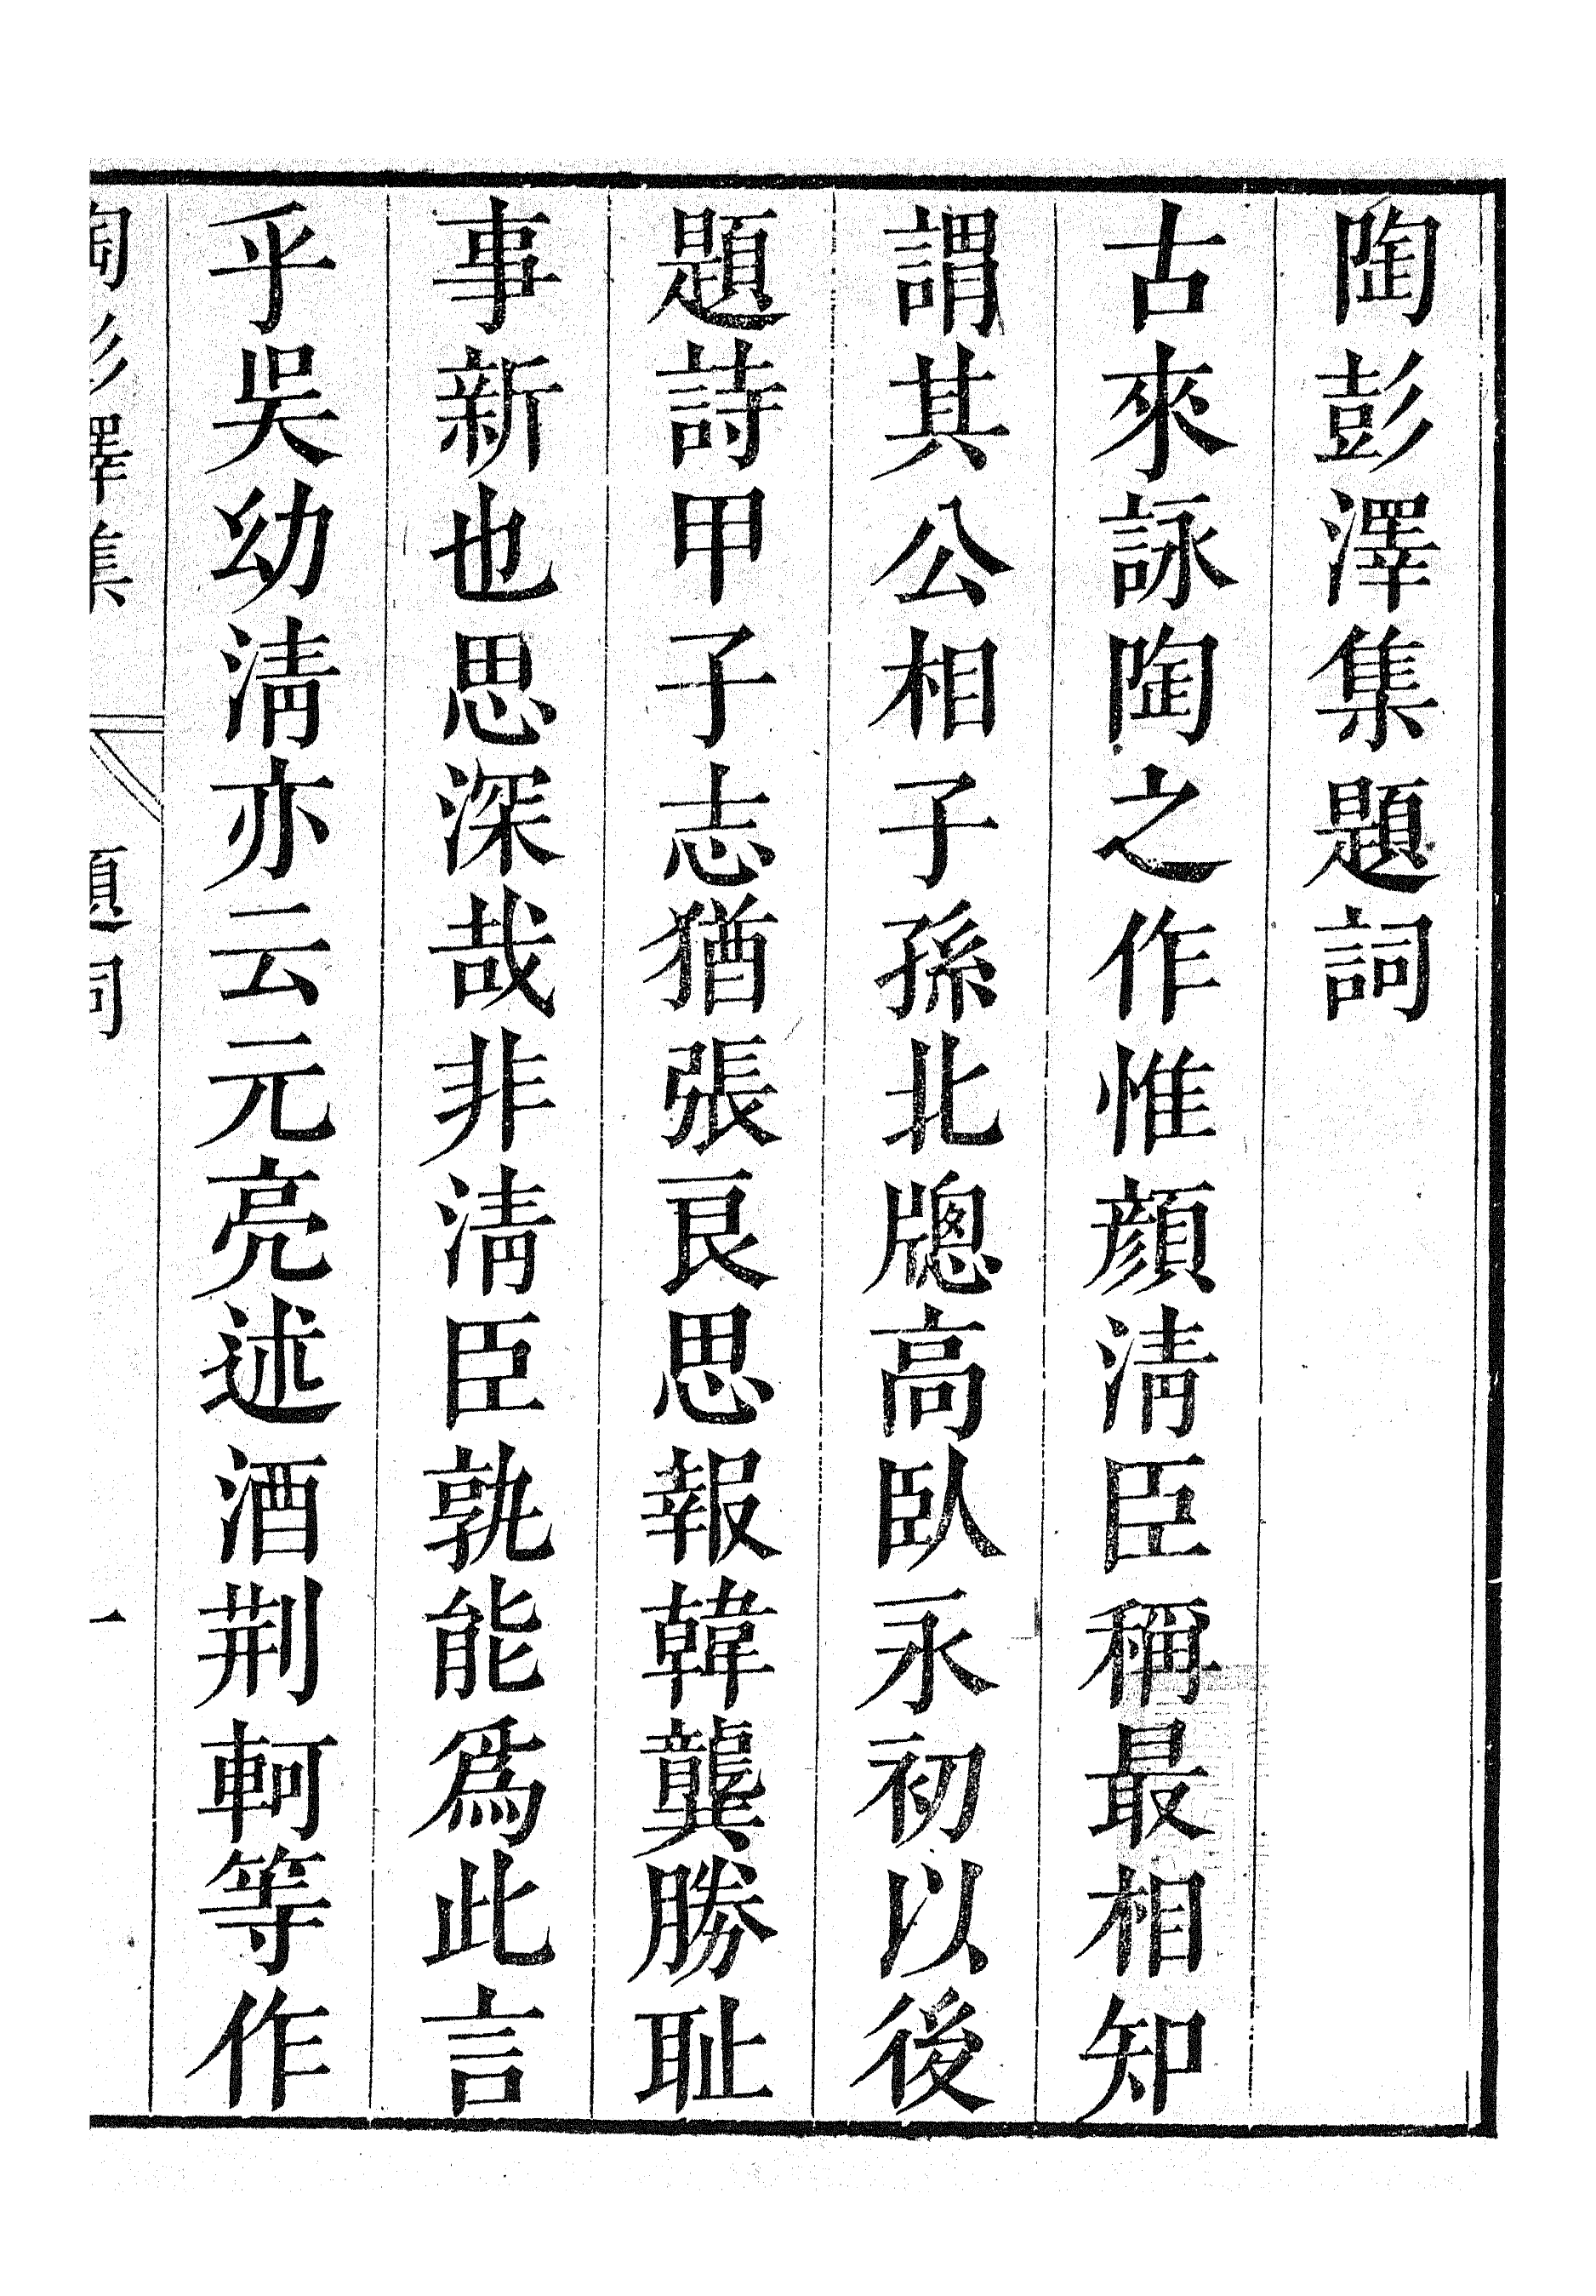 陶彭澤集題詞
古來詠陶之作惟顏淸臣稱最相知
謂其公相子孫北牎高臥永初以後
題詩甲子志猶張良思報韓龔勝恥
事新也思深哉非淸臣孰能爲此言
乎吳幼淸亦云元亮述酒荆軻等作
陶彭澤集 題詞 一